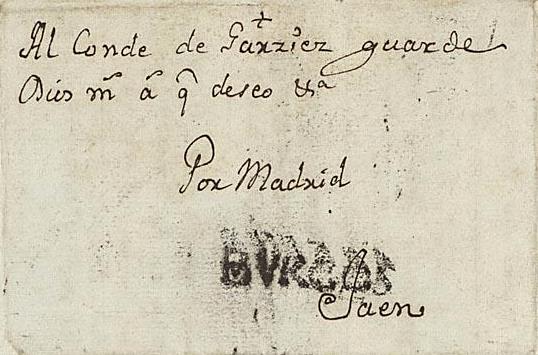 +
Al Conde de Garziez guarde
Dios mˢ aˢ qᵉ deseo &ª
Por Madrid
BVRGOS
Jaen